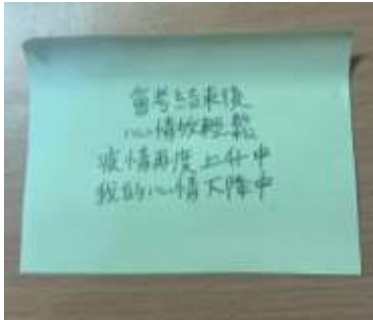 會考結束後
心情放輕鬆
疫情再度上升中
我的心情下降中